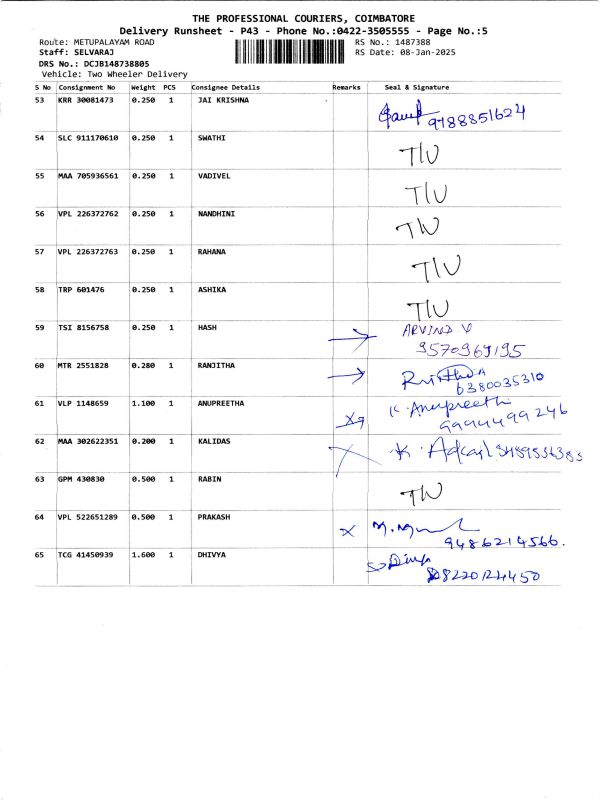 THE PROFESSIONAL COURIERS, COIMBATORE
Delivery Runsheet - P43 - Phone No.:0422-3505555 - Page No.:5
Route: METUPALAYAM ROAD RS No.: 1487388
Staff: SELVARAJ RS Date: 08-Jan-2025
DRS No.: DCJB148738805
Vehicle: Two Wheeler Delivery
S No Consignment No Weight PCS Consignee Details Remarks Seal & Signature
53 KRR 30081473 0.250 1 JAI KRISHNA
9788851624
54 SLC 911170610 0.250 1 SWATHI T/U
55 MAA 705936561 0.250 1 VADIVEL T/U
56 VPL 226372762 0.250 1 NANDHINI T/U
57 VPL 226372763 0.250 1 RAHANA T/U
58 TRP 601476 0.250 1 ASHIKA T/U
59 TSI 8156758 0.250 1 HASH ARVIND V
9570969195
60 MTR 2551828 0.280 1 RANJITHA
6380035310
61 VLP 1148659 1.100 1 ANUPREETHA K. Anupreeth
9994499246
62 MAA 302622351 0.200 1 KALIDAS K.
63 GPM 430830 0.500 1 RABIN T/U
64 VPL 522651289 0.500 1 PRAKASH
9486214566.
65 TCG 41450939 1.600 1 DHIVYA